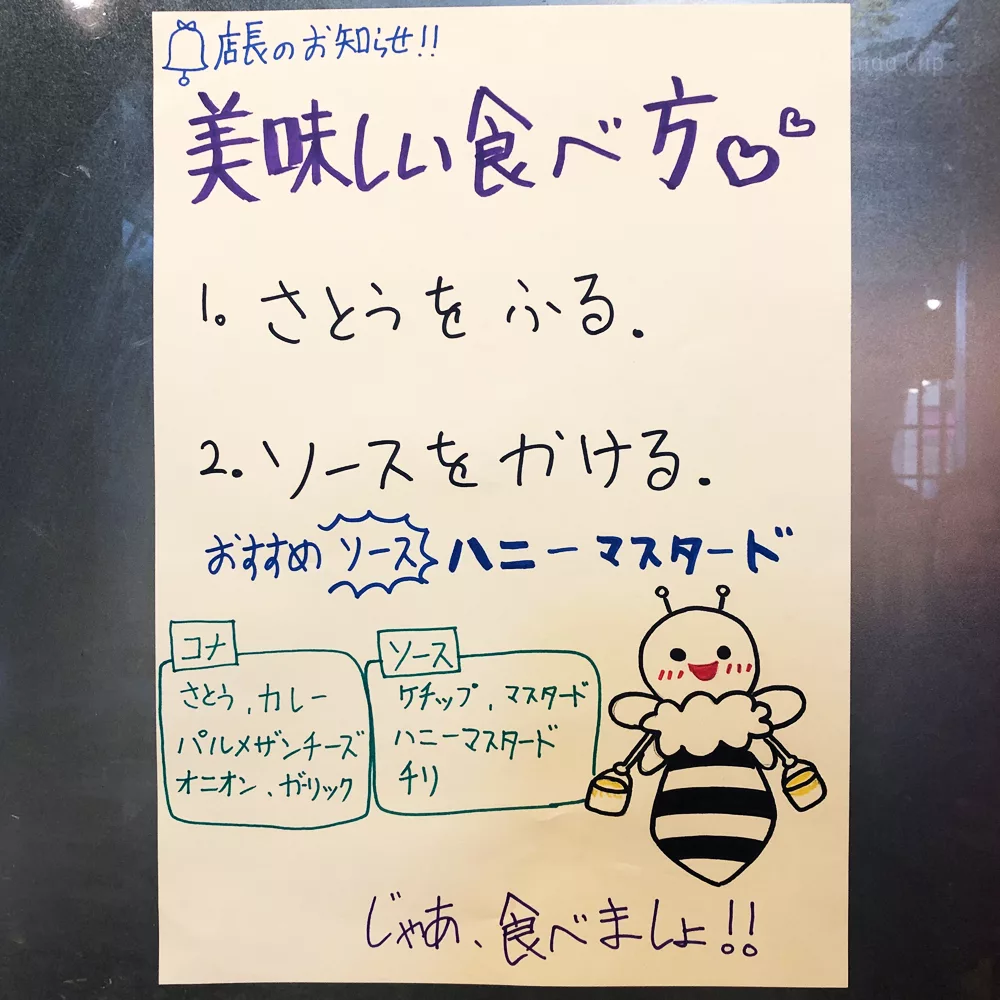 店長のお知らせ!!
美味しい食べ方♡♡
1. さとうをふる.
2. ソースをかける.
おすすめソース ハニーマスタード
コナ
さとう、カレー
パルメザンチーズ
オニオン、ガーリック
ソース
ケチップ、マスタード
ハニーマスタード
チリ
じゃあ、食べましょ!!